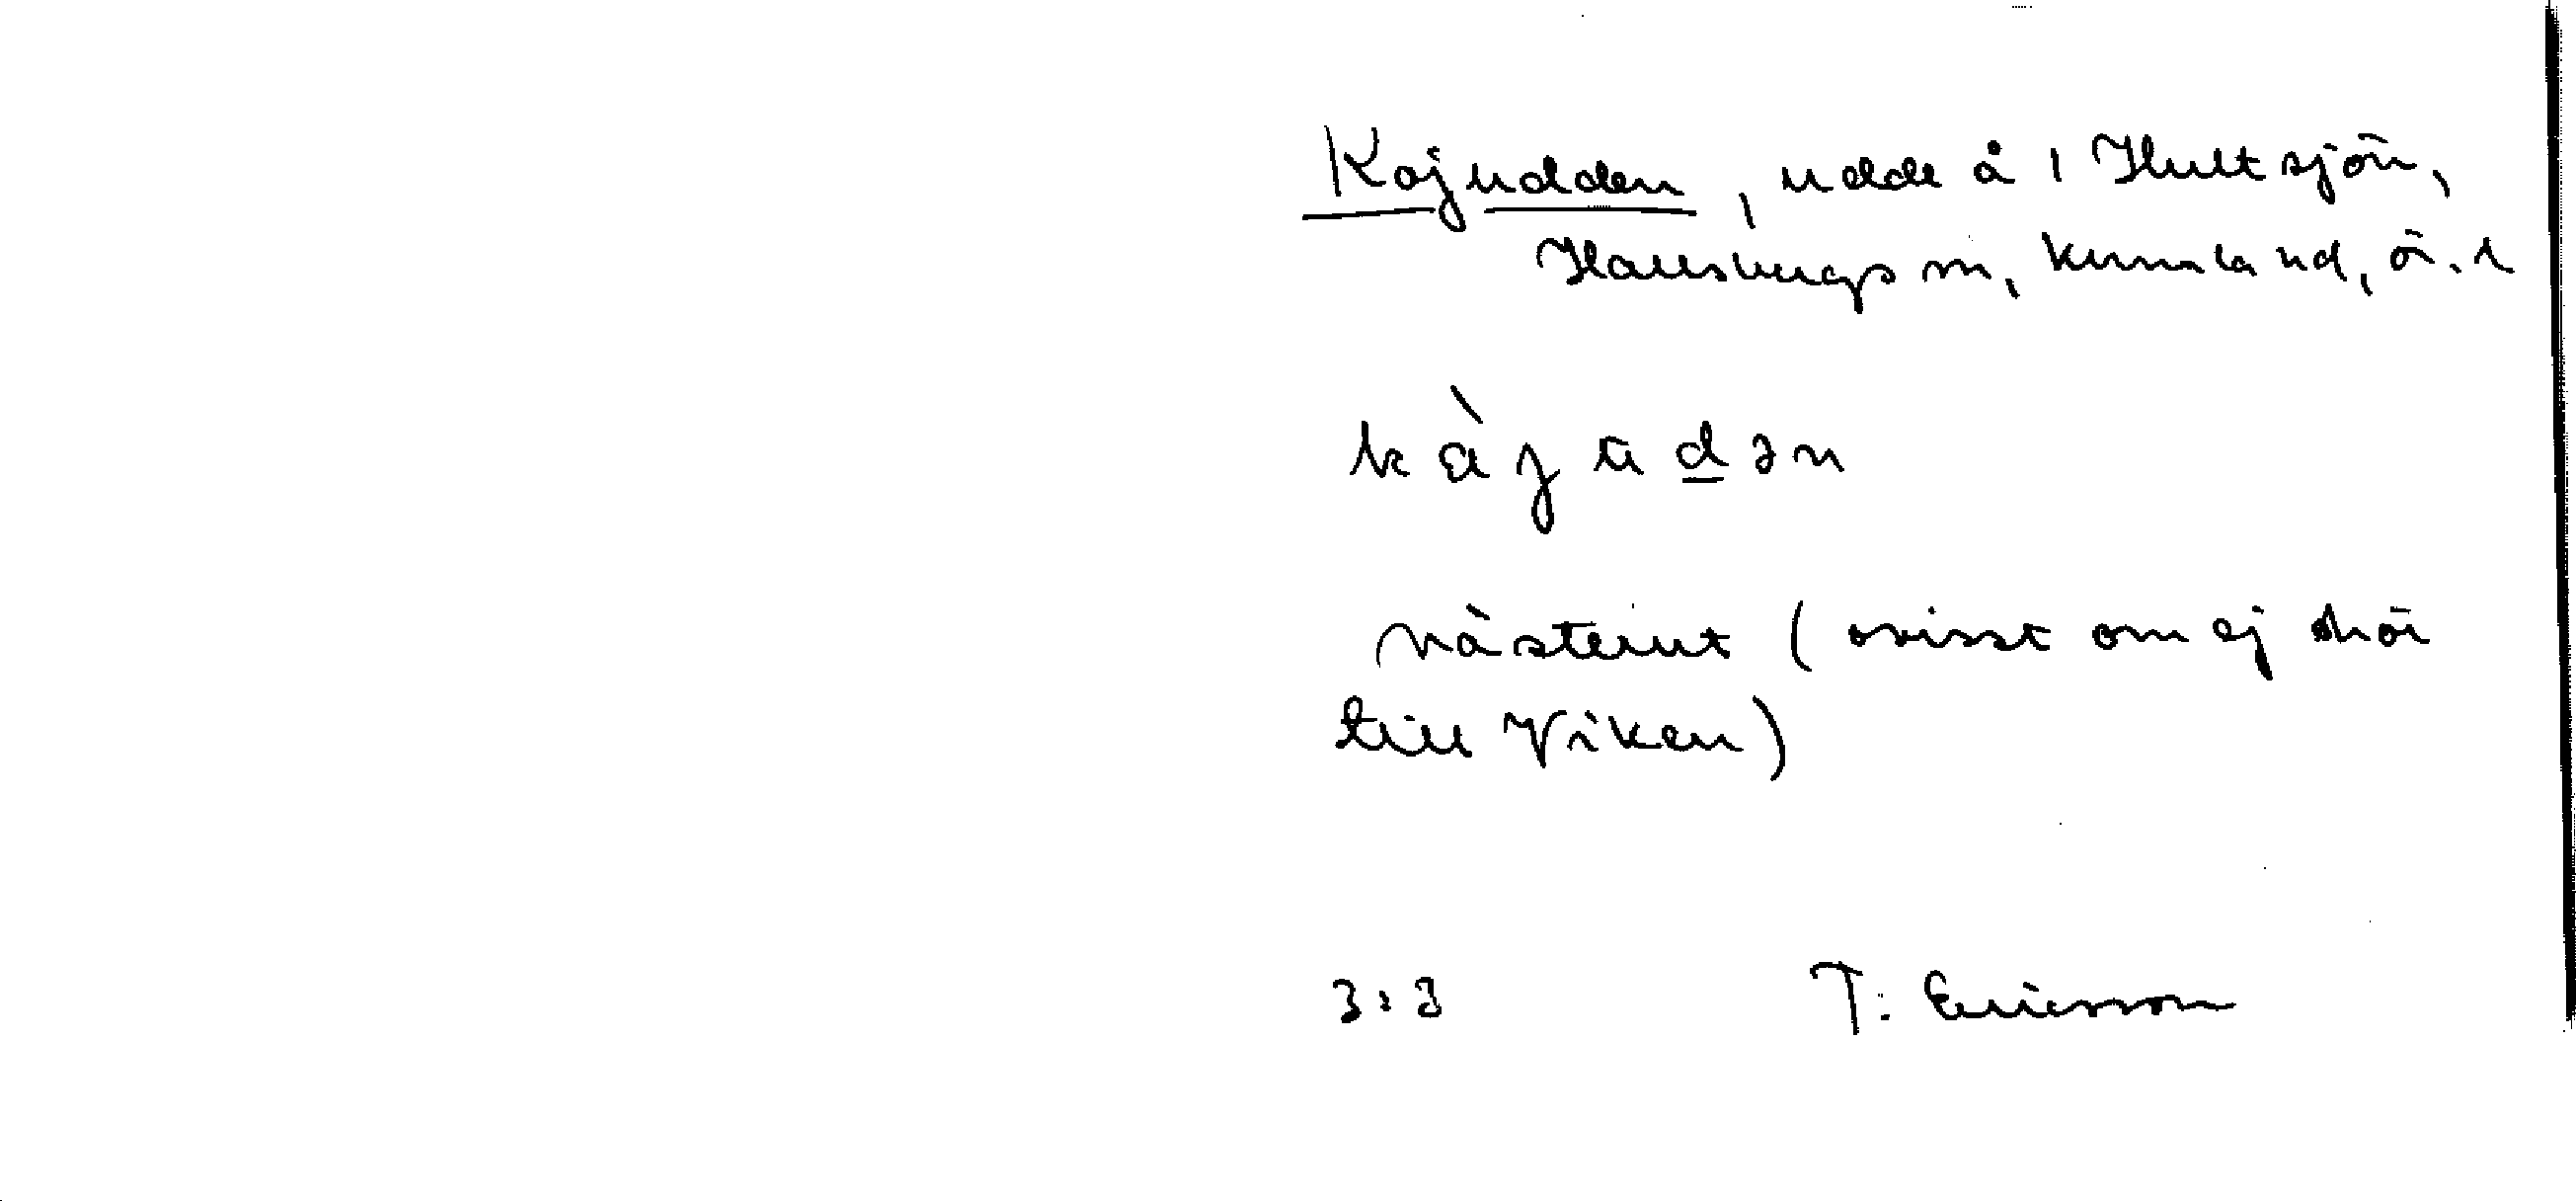 Kojudden, udde å i Hultsjön,
Hallsbergs sn, Kumla hd, ö. l
kàjudən
nästeint (ovisst om ej hör
till Viken)
3:3 T. Ericsson